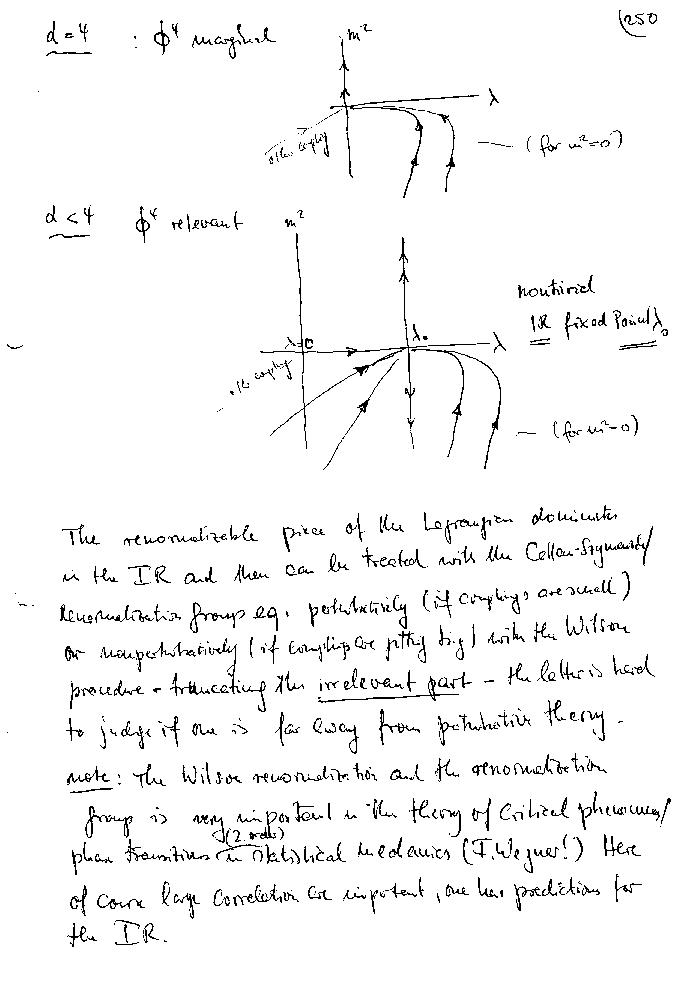 250
d=4 : ϕ⁴ marginal
m²
λ
other coupling
(for m²=0)
d<4 ϕ⁴ relevant
m²
nontrivial
IR fixed Point λ₀
λ=0
λ₀
λ
other coupling
(for m²=0)
The renormalizable piece of the Lagrangian dominates
in the IR and then can be treated with the Callan-Szymanzik/
renormalization group eq. pertubatively (if couplings are small)
or nonpertubatively (if couplings are getting big) with the Wilson
procedure + truncating the irrelevant part - the latter is hard
to judge if one is far away from pertubative theory.
note: The Wilson renormalization and the renormalization
group is very important in the theory of critical phenomena/
(2. order)
phase transitions in statistical mechanics (F. Wegner!) Here
of course large correlation are important, one has predictions for
the IR.